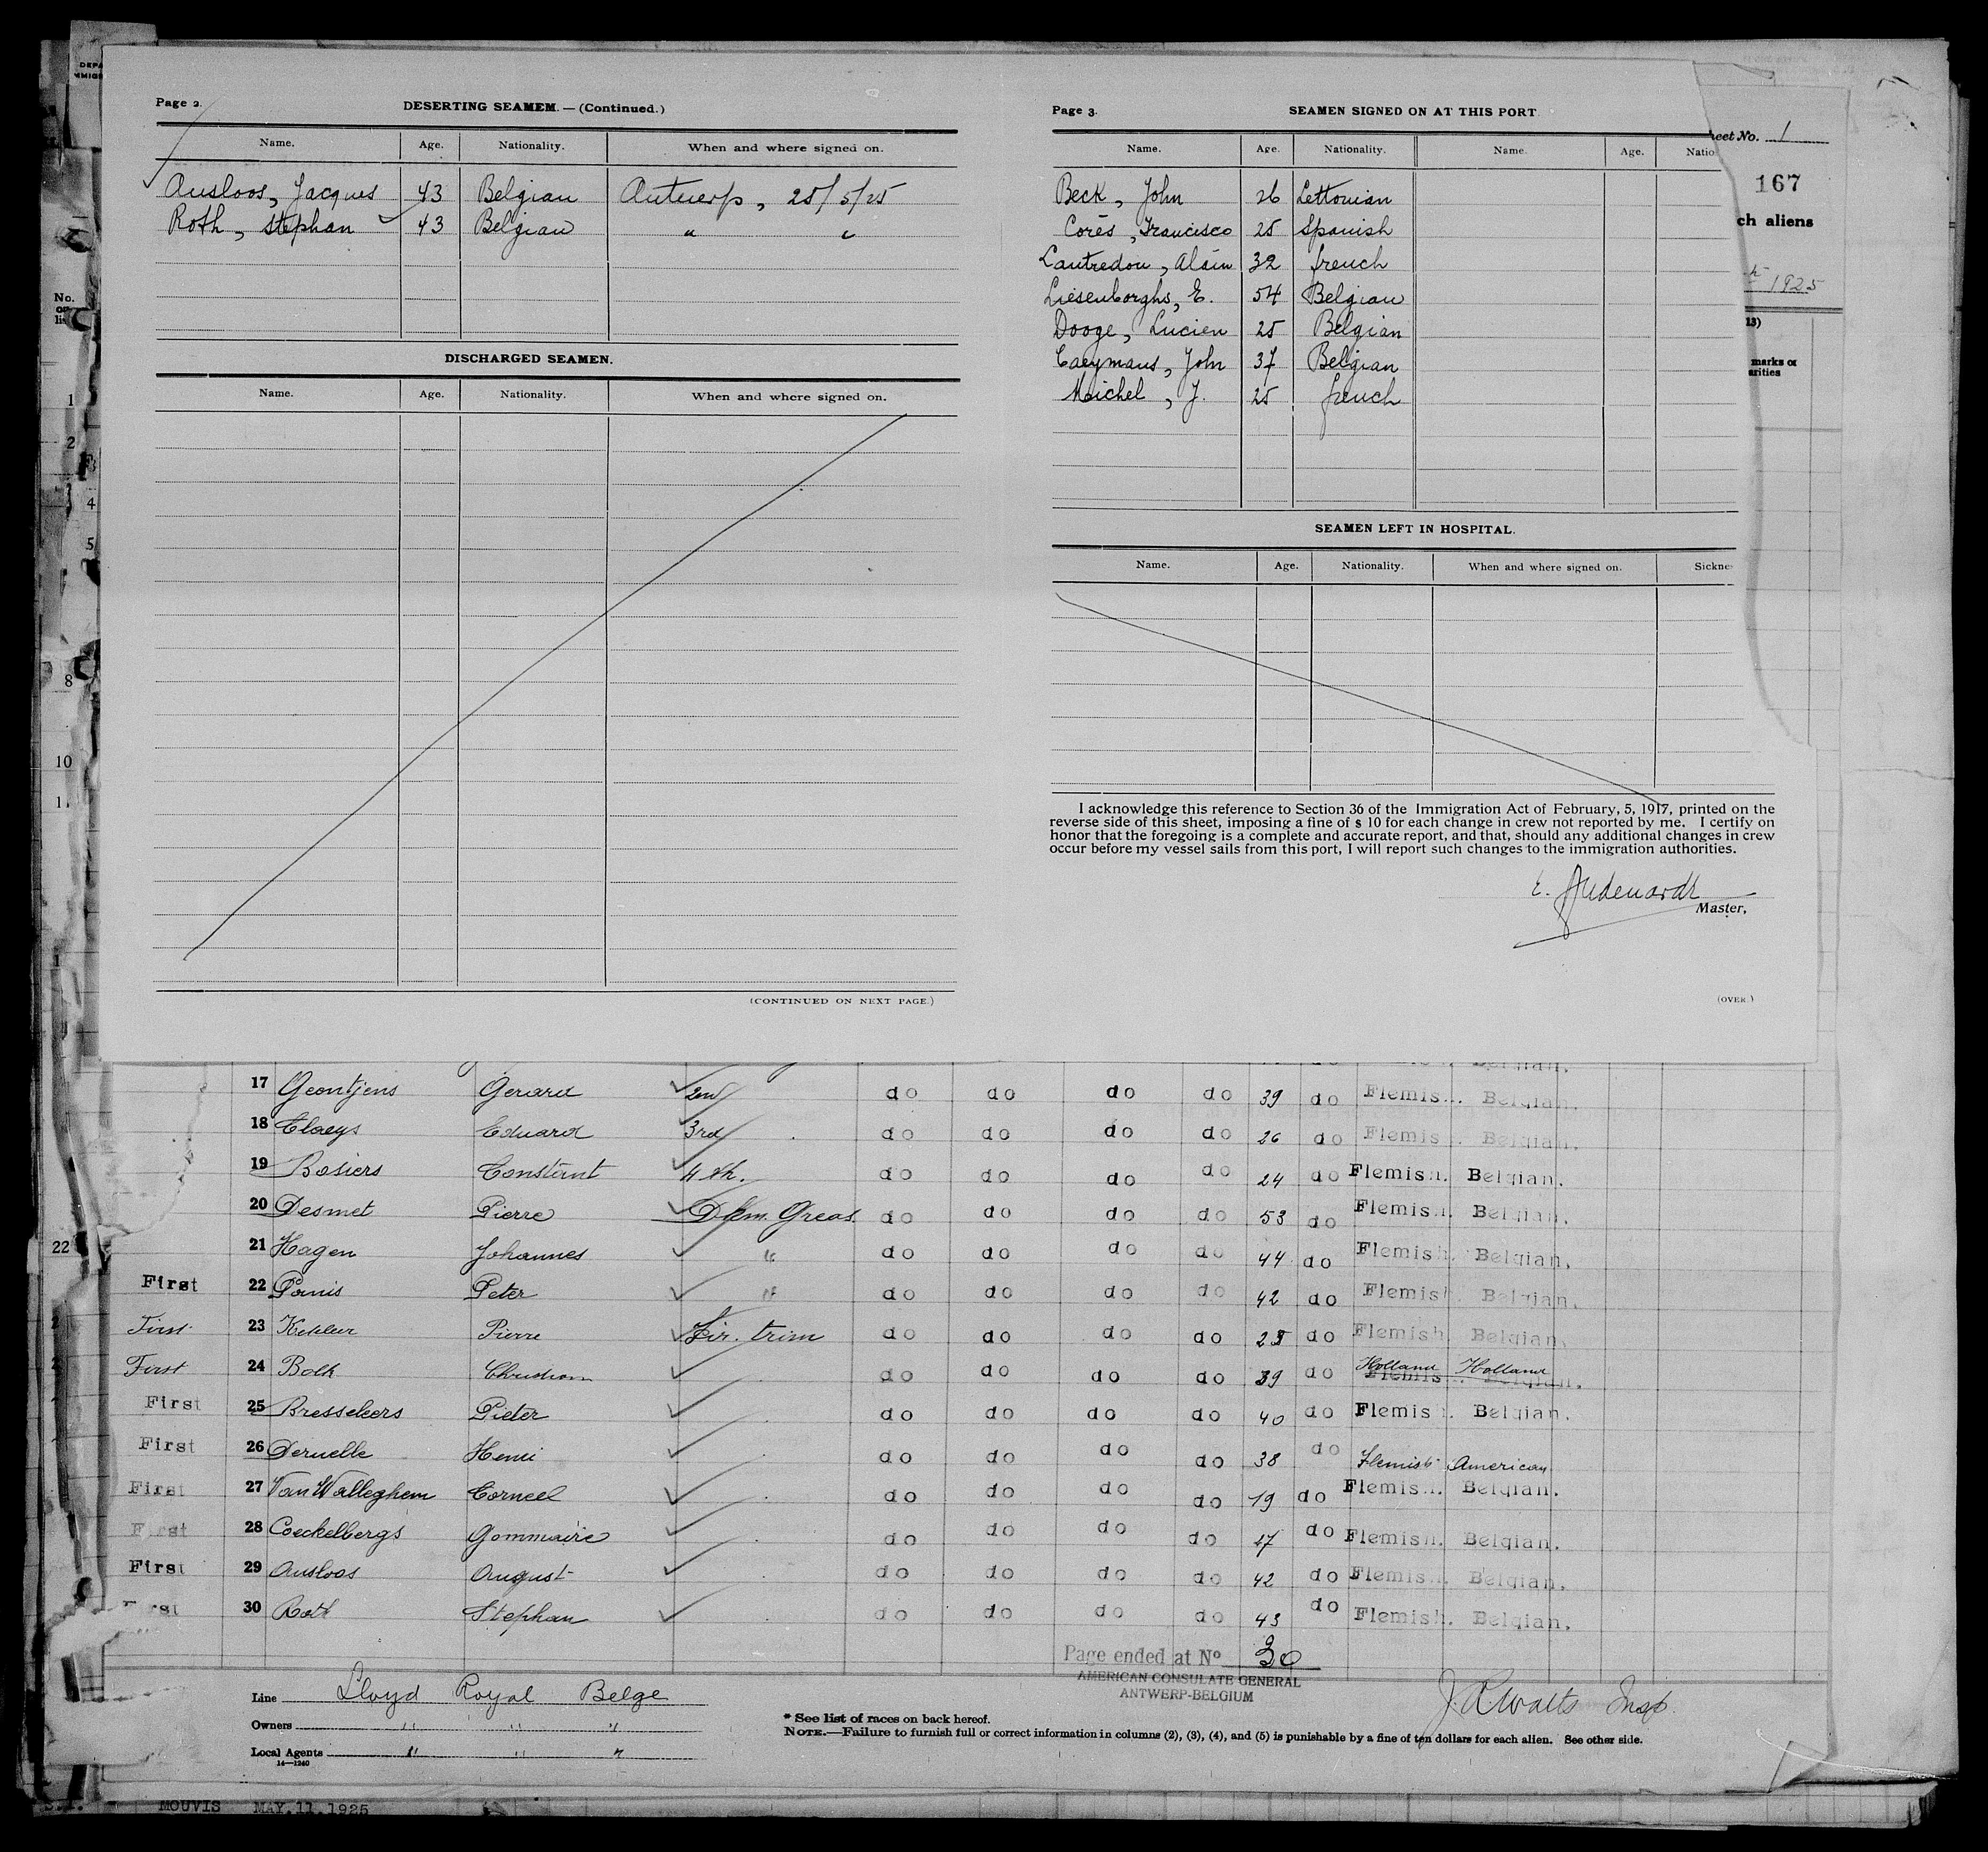 Page 2.
DESERTING SEAMEM.—(Continued.)
Name. Age. Nationality. When and where signed on.
Ausloos, Jacques 43 Belgian Antwerp, 25/5/25
Roth, Stephan 43 Belgian " "
DISCHARGED SEAMEN.
Name. Age. Nationality. When and where signed on.
(CONTINUED ON NEXT PAGE.)
Page 3.
SEAMEN SIGNED ON AT THIS PORT
Name. Age. Nationality. Name. Age. Natio
Beck, John 26 Lettonian
Corés, Francisco 25 Spanish
Lautredou, Alain 32 french
Liesenborghs, E. 54 Belgian
Dooge, Lucien 25 Belgian
Caeymaus, John 37 Belgian
Michel, J. 25 french
SEAMEN LEFT IN HOSPITAL.
Name. Age. Nationality. When and where signed on. Sickne
I acknowledge this reference to Section 36 of the Immigration Act of February, 5, 1917, printed on the
reverse side of this sheet, imposing a fine of $ 10 for each change in crew not reported by me. I certify on
honor that the foregoing is a complete and accurate report, and that, should any additional changes in crew
occur before my vessel sails from this port, I will report such changes to the immigration authorities.
Master,
(OVER.)
eet No. 1
167
ch aliens
1925
13)
marks or
arities
DEPA
MMIGR
No.
on
lis
1
2
4
5
8
10
11
22
17 Geontjens Gerard 2nd do do do do 39 do Flemish. Belgian.
18 Claeys Eduard 3rd do do do do 26 do Flemish. Belgian.
19 Bosiers Constant 4th. do do do do 24 do Flemish. Belgian.
20 Desmet Pierre Dkm. Greas. do do do do 53 do Flemish. Belgian.
21 Hagen Johannes " do do do do 44 do Flemish. Belgian.
First 22 Panis Peter " do do do do 42 do Flemish. Belgian.
First 23 Pierre Fir. trim do do do do 25 do Flemish. Belgian.
First 24 Bolk Christiaan do do do do 39 do Holland Holland Flemish. Belgian.
First 25 Bresseleers Pieter do do do do 40 do Flemish. Belgian.
First 26 Deruelle Henri do do do do 38 do Flemish American
First 27 Van Walleghem Corneel do do do do 19 do Flemish. Belgian.
First 28 Coeckelbergs Gommaire do do do do 27 do Flemish. Belgian.
First 29 Ausloos August do do do do 42 do Flemish. Belgian.
First 30 Roth Stephan do do do do 43 do Flemish. Belgian.
Page ended at No 30
AMERICAN CONSULATE GENERAL
ANTWERP-BELGIUM
Line Lloyd Royal Belge
Owners " " "
Local Agents " " "
14—1240
* See list of races on back hereof.
NOTE.—Failure to furnish full or correct information in columns (2), (3), (4), and (5) is punishable by a fine of ten dollars for each alien. See other side.
J. R. Watts Insp.
MOUVIS MAY.11.1925